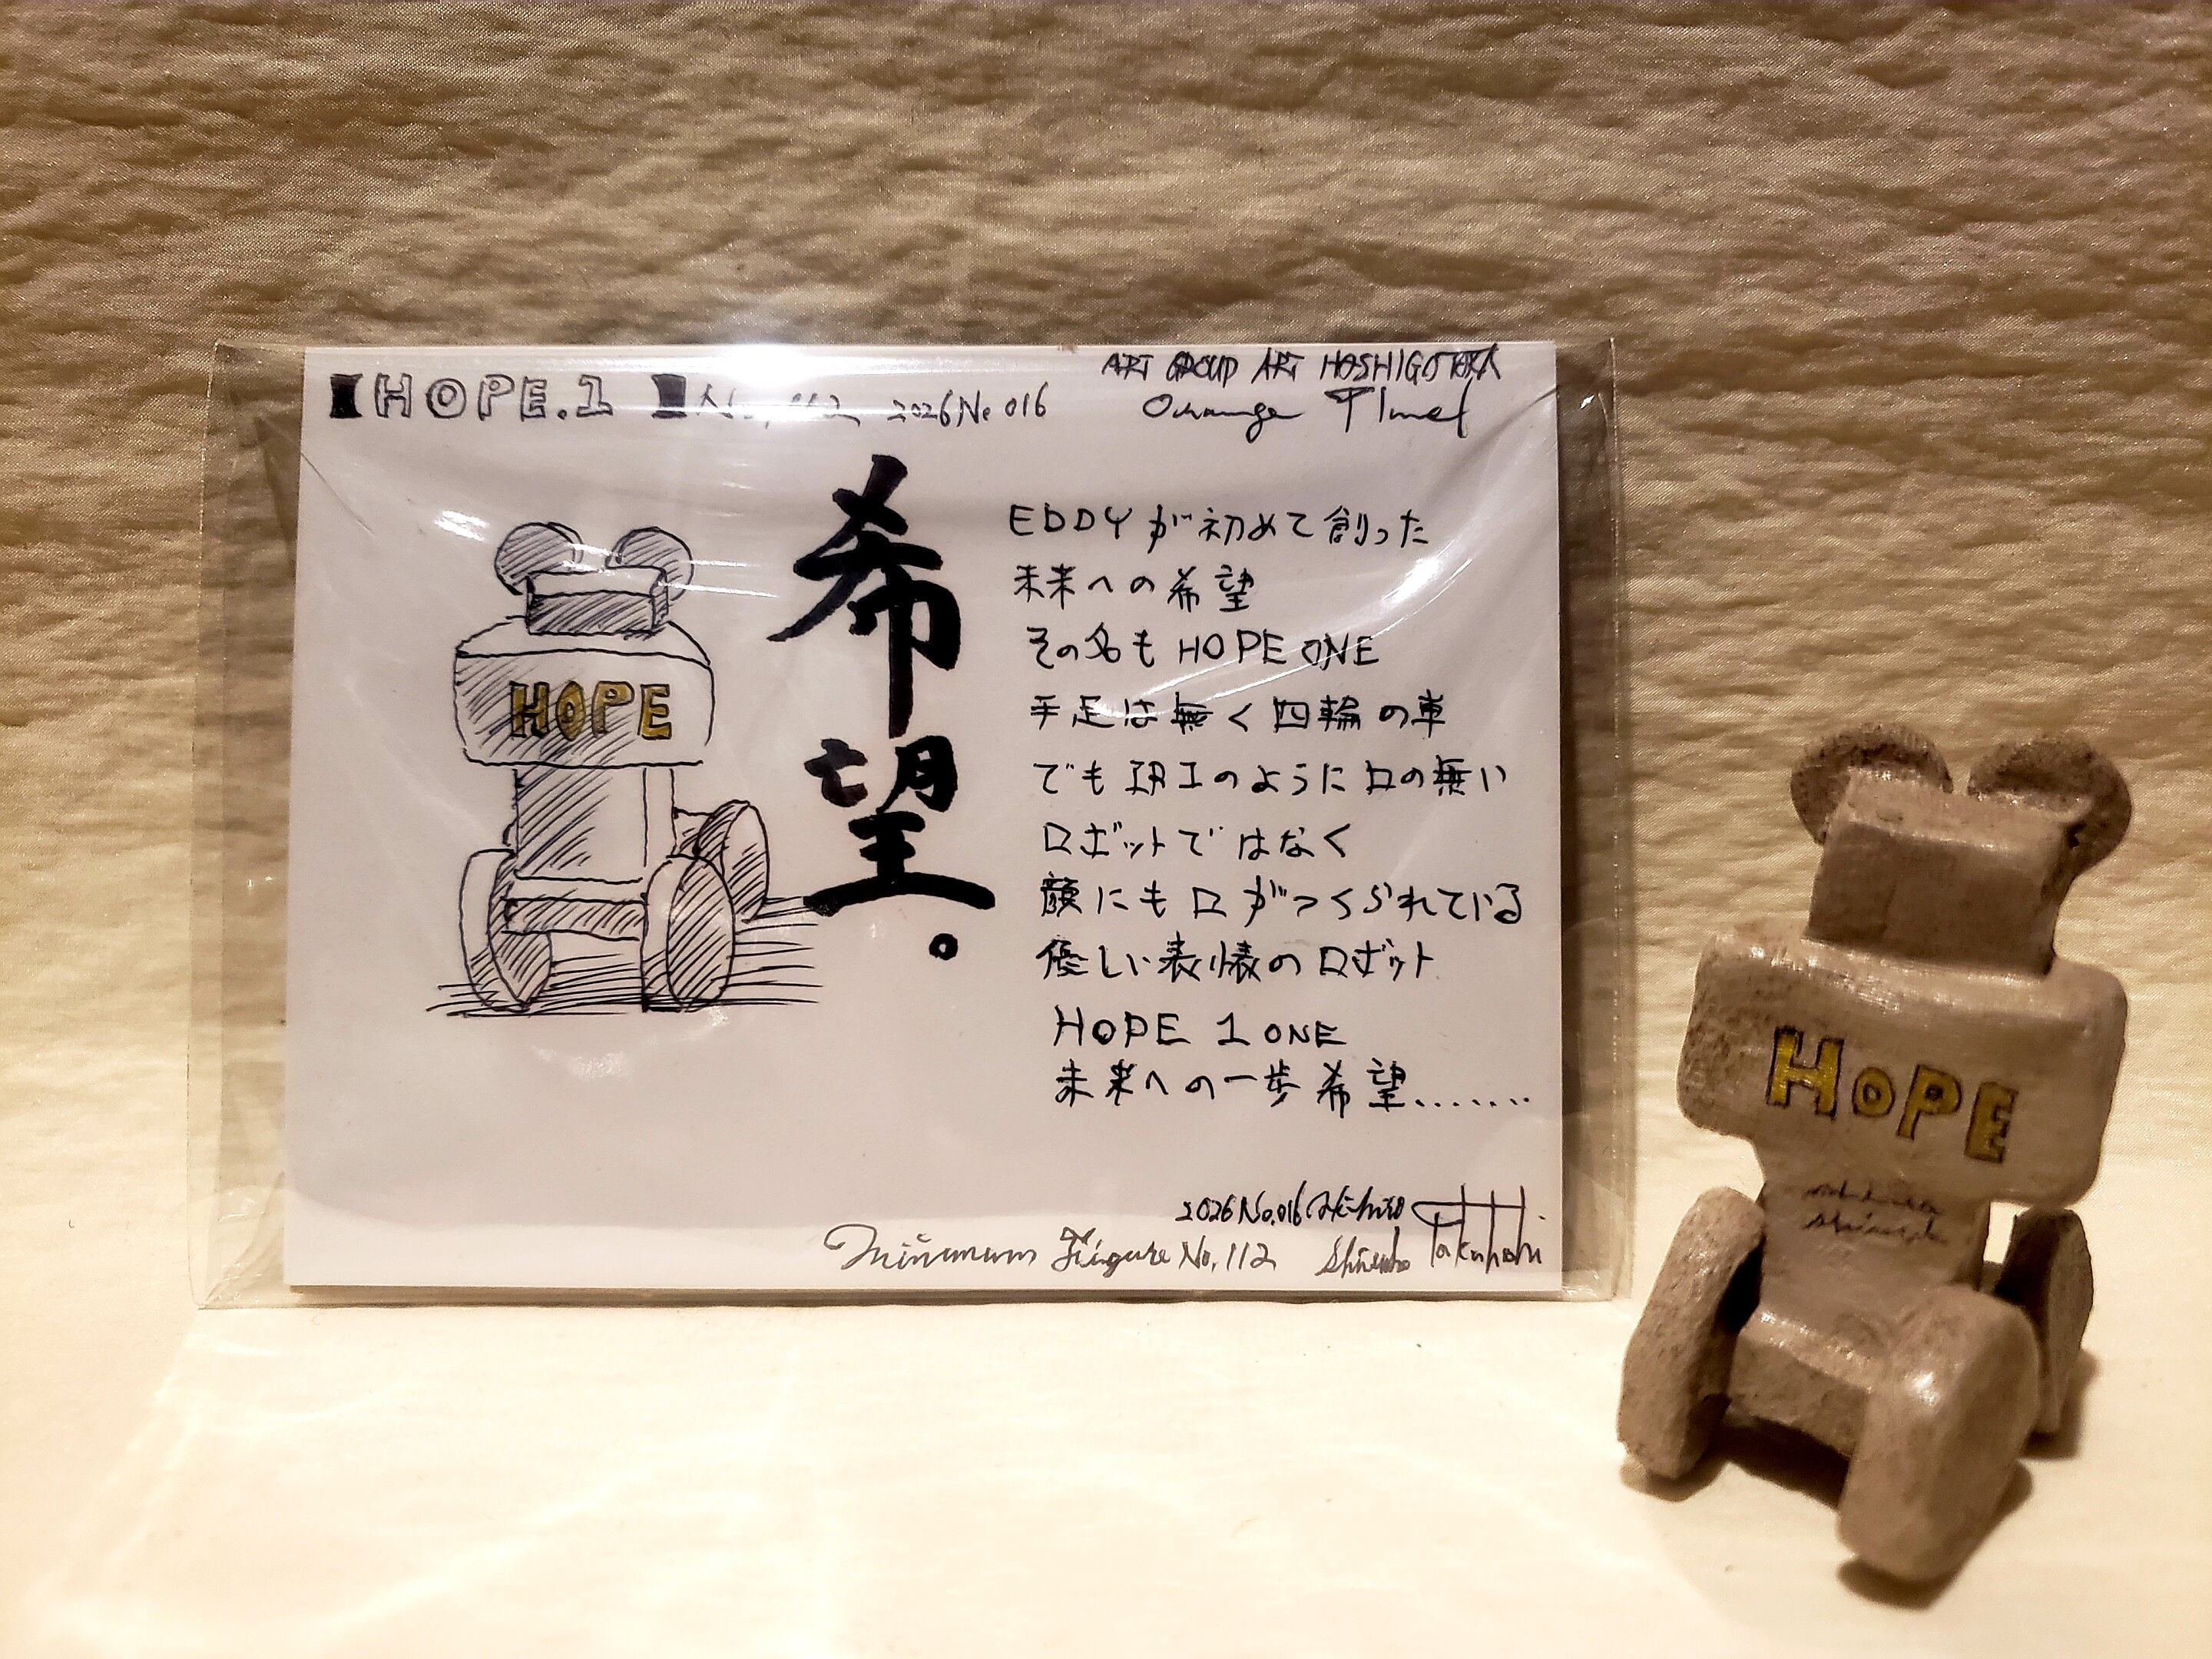 HOPE.1 No. 112 2026 No 016
ART GROUP ART HOSHIGOTOKA
Orange Time!
希望。
EDDYが初めて創った
未来への希望
その名も HOPE ONE
手足は無く四輪の車
でも のように口の無い
ロボットではなく
顔にも口がつくられている
優しい表情のロボット
HOPE 1 ONE
未来への一歩希望.......
2026 No.016 Akihiro
Minimum Fiigure No.112
HOPE
HOPE